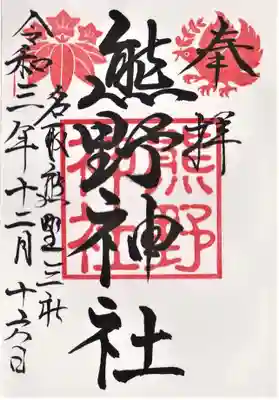 奉拝
熊野神社
熊野
神社
名取熊野三社
令和三年十二月十六日